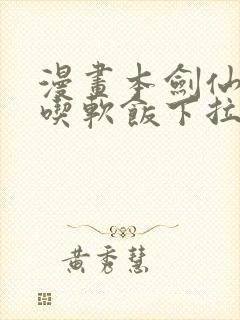 漫畫本劍仙
喫軟飯下拉
黃秀慧